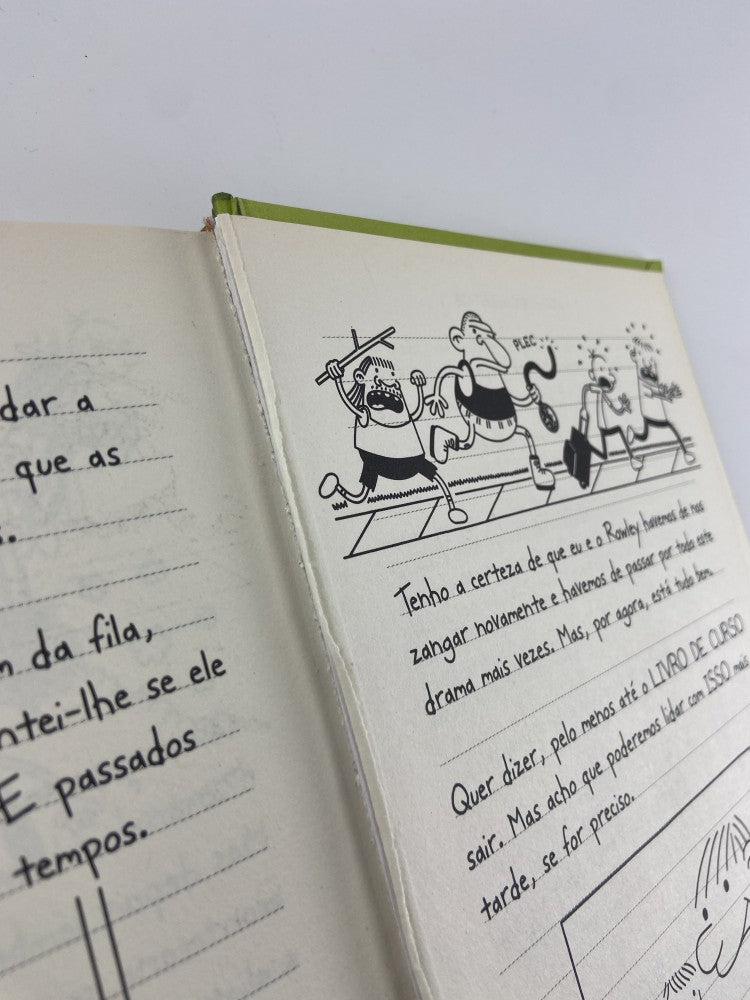 dar a
que as
da fila,
ntei-lhe se ele
E passados
tempos.
PLEC
Tenho a certeza de que eu e o Rowley havemos de nos
zangar novamente e havemos de passar por todo este
drama mais vezes. Mas, por agora, está tudo bem.
Quer dizer, pelo menos até o LIVRO DE CURSO
sair. Mas acho que poderemos lidar com ISSO mais
tarde, se for preciso.